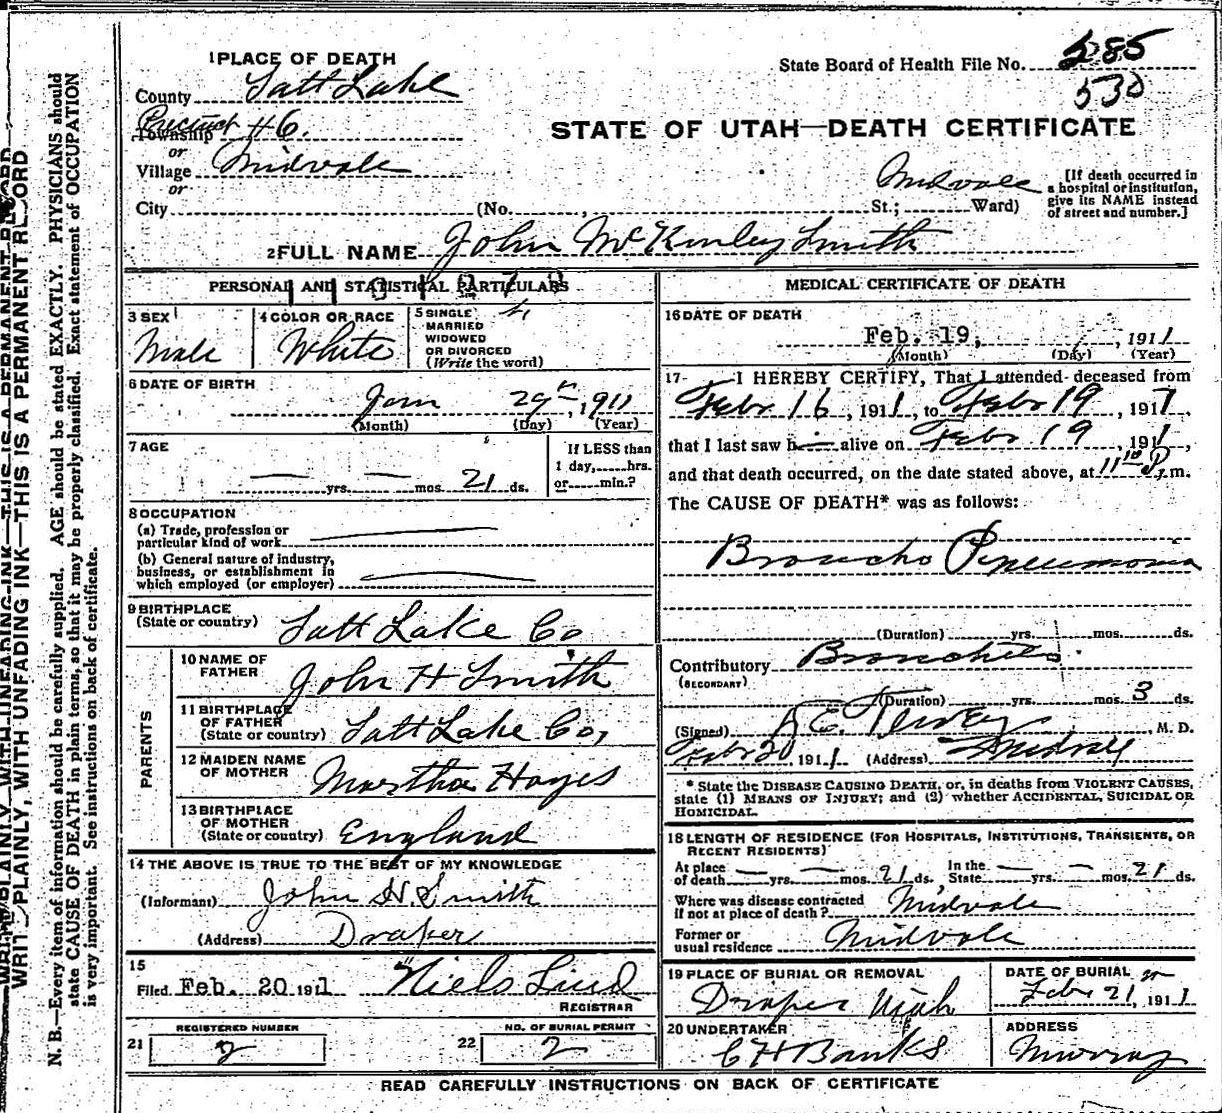 1 PLACE OF DEATH
State Board of Health File No. 285
530
County Salt Lake
Precinct #6.
Township
or
STATE OF UTAH—DEATH CERTIFICATE
Village Midvale
or
City (No. , Midvale St.; Ward)
[If death occurred in
a hospital or institution,
give its NAME instead
of street and number.]
2 FULL NAME John McKinley Smith
PERSONAL AND STATISTICAL PARTICULARS
3 SEX
Male
4 COLOR OR RACE
White
5 SINGLE
MARRIED
WIDOWED
OR DIVORCED
(Write the word)
6 DATE OF BIRTH
Jan 29th, 1911
(Month) (Day) (Year)
7 AGE
If LESS than
1 day, hrs.
or min.?
— yrs. — mos. 21 ds.
8 OCCUPATION
(a) Trade, profession or
particular kind of work
(b) General nature of industry,
business, or establishment in
which employed (or employer)
9 BIRTHPLACE
(State or country) Salt Lake Co
PARENTS
10 NAME OF
FATHER John H Smith
11 BIRTHPLACE
OF FATHER
(State or country) Salt Lake Co,
12 MAIDEN NAME
OF MOTHER Martha Hayes
13 BIRTHPLACE
OF MOTHER
(State or country) England
14 THE ABOVE IS TRUE TO THE BEST OF MY KNOWLEDGE
(Informant) John H Smith
(Address) Draper
15
Filed Feb. 20 1911 Niels Lind
REGISTRAR
REGISTERED NUMBER
21 2
NO. OF BURIAL PERMIT
22 2
MEDICAL CERTIFICATE OF DEATH
16 DATE OF DEATH
Feb. 19, , 1911
(Month) (Day) (Year)
17- I HEREBY CERTIFY, That I attended deceased from
Febr 16, 1911, to Febr 19, 1911,
that I last saw h— alive on Febr 19, 1911,
and that death occurred, on the date stated above, at 11 P.m.
The CAUSE OF DEATH* was as follows:
Broncho Pneumonia
(Duration) yrs. mos. ds.
Contributory Bronchitis
(SECONDARY)
(Duration) yrs. mos. 3 ds.
(Signed) , M. D.
Febr 20 1911 (Address) Midvale
* State the DISEASE CAUSING DEATH, or, in deaths from VIOLENT CAUSES,
state (1) MEANS OF INJURY; and (2) whether ACCIDENTAL, SUICIDAL OR
HOMICIDAL.
18 LENGTH OF RESIDENCE (FOR HOSPITALS, INSTITUTIONS, TRANSIENTS, OR
RECENT RESIDENTS)
At place
of death — yrs. — mos. 21 ds. In the
State — yrs. — mos. 21 ds.
Where was disease contracted
if not at place of death? Midvale
Former or
usual residence Midvale
19 PLACE OF BURIAL OR REMOVAL
Draper Utah
DATE OF BURIAL
Febr 21, 1911
20 UNDERTAKER
C H Banks
ADDRESS
Murray
READ CAREFULLY INSTRUCTIONS ON BACK OF CERTIFICATE
WRITE PLAINLY, WITH UNFADING INK—THIS IS A PERMANENT RECORD
N. B.—Every item of information should be carefully supplied. AGE should be stated EXACTLY. PHYSICIANS should
state CAUSE OF DEATH in plain terms, so that it may be properly classified. Exact statement of OCCUPATION
is very important. See instructions on back of certificate.